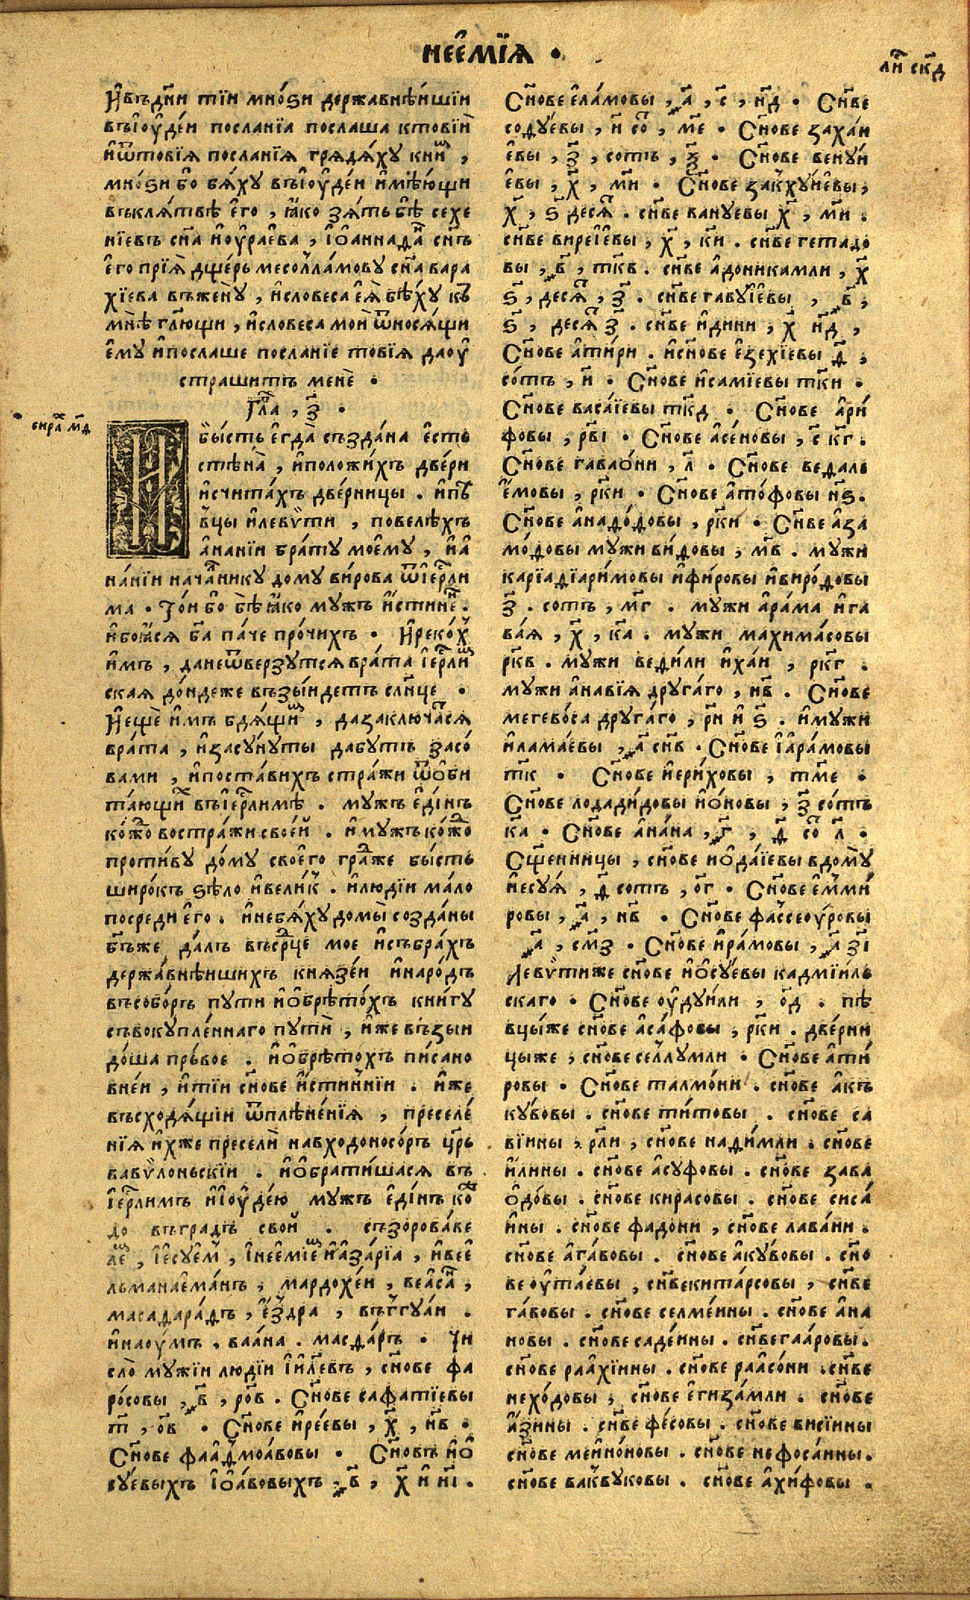 нее҆мїѧ ·
ли҃ ск҃д
И҆въдн҃и тїи мно́ѕи державнѣи́шїи
въїю҆де́и посланїа послаша ктовїи
и҆ѿтовїѧ посланїѧ грѧдѧ́ху книⷨ ,
мно́ѕи бо бѧ́ху въїю҆де́и и҆мѣющи
въклѧ́твѣ е҆го , ꙗ҆ко зѧть бѣ̀ сехе
нїевъ сн҃а и҆оу҆рае́ва , і҆ѡ҆аннадⷶ сн҃ъ
е҆го прїѧ̀ дще́рь месоллѧмову сн҃а вара
хїева въжену̀ , и҆словеса е҆ѧ̀ бѣ́ху къ
мнѣ̀ гл҃ющи , и҆словеса моѧ̀ ѿносѧ́щи
е҆му и҆послаше посланїе товїѧ даоу҆
страшитъ менѐ ·
Гла҃ , з҃ ·
сира́хⷯ м҃д
И
бы́сть е҆гда̀ създа́на е҆сть
стѣна̀ , и҆положи́хъ две́ри
и҆счита́хъ две́рницы . и҆пѣ
вцы и҆леви́ти , повелѣ́хъ
а҆на́нїи бра́ту мое́му , и҆а
на́нїи нача́лнику дому ви́рова ѿі҆ерⷭ҇ли
ма · То́и бо бѣ̀ ꙗ҆ко мужъ и҆́стинеⷩ .
и҆боꙗ́сѧ бг҃а па́че про́чихъ · И҆реко́хⷯ
и҆мъ , данеѿверзутсѧ вра́та і҆ерⷭ҇лиⷨ
скаѧ до́ндеже възы́идетъ сл҃нце ·
И҆ещѐ и҆мъ бдѧ́щиⷨ , дазаключа́тсѧ
вра́та , и҆засу́нуты дабутъ засо́
вами , и҆поста́вихъ стра́жи ѿѡ҆би
та́ющиⷯ въі҆ерⷭ҇лимѣ . мужъ е҆ди́нъ
ко́ждо востра́жи свое́й . и҆мужъ ко́ждо
проти́ву до́му свое́го граⷣже бы́сть
широ́къ ѕѣ́ло и҆вели́кⷦ . и҆лю́дїи ма́ло
посреди е҆го . и҆небѧ́ху домы̀ созда́ны
бг҃ъже да́лъ въсрⷣце мое и҆събра́хъ
держа́внѣишихъ кнѧзе́и и҆наро́дъ
въсобо́ръ пути и҆ѡ҆брѣто́хъ кни́гу
съвокупле́ннаго пути̂ , и҆же възы́и
до́ша пре́вое . и҆ѡ҆брѣто́хъ пи́сано
вне́и , и҆тїи сн҃ове и҆́стиннїи . и҆же
въсходѧ́щїи ѿплѣне́нїѧ , преселе́
нїѧ и҆хже преселѝ навходоносо́ръ цр҃ь
вавѷлоньскїи . и҆ѡ҆брати́шасѧ въ
і҆ерⷭ҇лимъ и҆ї҆ю҆де́ю мужъ е҆ди́нъ коⷤ
до въградъ свой . съзорова́ве
леⷨ , і҆е҆суе́мⷨ , і҆нее҆мїеⷨ и҆а҆за́рїа , и҆вее҆
льманае҆ма́нъ , мардохе́и , веа҆саⷩ ,
масадара́дъ , е҆́здра , въггуа́и .
и҆наоу́мъ . ваа́на . масда́ръ · Чи
сло̀ мужїи людїи і҆и҆лⷭ҇евъ , сн҃ове фа
ро́совы , ҂в҃ , ро҃в . Сн҃ове сафатїевы
т҃ , о҃в · Сн҃ове и҆ре́евы , х҃ , н҃в ·
Сн҃ове фаа́дмоа́вовы · Сн҃овъ и҆ѡ҆
суевыхъ і҆ѡ҆а́вовыхъ , ҂в҃ , х҃ и и҃і .
Сн҃ове е҆ла́мовы , ҂а҃ , с҃ , н҃д · Сн҃ве
соду́евы , и҃ соⷮ , м҃е · Сн҃ове заха́и
е҆вы , з҃ , сотъ , ѯ҃ · Сн҃ове вену́и
е҆вы , х҃ , м҃и · Сн҃ове закхуи́евы ,
х҃ , ѕ҃ десѧⷮ . сн҃ве вану́евы х҃ , м҃и .
сн҃ве вире́і҆евы , х҃ , к҃и . сн҃ве гетадо
вы , ҂в҃ , тк҃в . сн҃ве а҆доникамли , х҃
ѕ҃ , десѧⷮ , з҃ . сн҃ве гавуі҆́евы , ҂в҃ ,
ѕ҃ , десѧⷮ з҃ . сн҃ве и҆дини , х҃ н҃д ,
Сн҃ове а҆ти́ри . и҆сн҃ове е҆зехїевы д҃ ,
со́тъ , и҃ · Сн҃ове и҆самїевы тк҃и ·
Сн҃ове васа́їевы тк҃д · Сн҃ове а҆ри́
фовы , рв҃і · Сн҃ове а҆се́новы , с҃ к҃г .
Сн҃ове гаваѡ́ни , л҃ · Сн҃ове ведале
е҆́мовы , рк҃и · Сн҃ове а҆то́фовы н҃ѕ .
Сн҃ове а҆надо́довы , рк҃и · Сн҃ве а҆за
мо́довы мужи ви́довы , м҃в . мужи
карїадїари́мовы и҆фи́ровы и҆виро́довы
з҃ . сотъ , м҃г . мужи а҆ра́ма и҆га
ва́ѧ , х҃ , к҃а . мужи махима́совы
рк҃в . мужи веди́ли и҆ха́и , рк҃г .
мужи а҆на́вїѧ друга́го , н҃в . Сн҃ове
мегево́са друга́го , р҃н и ѕ҃ . и҆мужи
и҆лама́евы , ҂а҃ сн҃в · Сн҃ове і҆а҆ра́мовы
т҃к · Сн҃ове и҆ери́ховы , тм҃е ·
Сн҃ове лодади́довы и҆ѡ́новы , з҃ со́тъ
к҃а · Сн҃ове а҆на́на , ҂г҃ , д҃ соⷮ л҃ ·
Сщ҃е́нницы , сн҃ове и҆ѡ҆да́їевы вдо́му
и҆е́суѧ , д҃ сотъ , о҃г · Сн҃ове е҆мми́
ровы , ҂а҃ , н҃в · Сн҃ове фа́ссеоу́ровы
҂а҃ , см҃з · Сн҃ове и҆ра́мовы , ҂а҃ з҃і
Леви́тиже сн҃ове и҆ѡ҆су́евы кадмїи́ль
скаго · Сн҃ове оу҆ду́или , о҃д . пѣ
вцы́же сн҃ове а҆са́фовы , рк҃и . две́рни
цыже , сн҃ове селлумли · Сн҃ове а҆ти́
ровы · Сн҃ове талмо́ни . сн҃ове а҆къ
ку́вовы . сн҃ове ти́товы . сн҃ове са
вїины , рл҃и , сн҃ове нади́мли . сн҃ове
и҆́лины . сн҃ове а҆суфовы . сн҃ове зава
ѡ҆до́вы . сн҃ове кирасовы . сн҃ове сиса́
и҆ны . сн҃ове фадо́ни , сн҃ове лава́ни .
сн҃ове а҆га́вовы . сн҃ове а҆ку́вовы . сн҃о
ве оу҆та́евы , сн҃векита́рсовы , сн҃ве
га́вовы . сн҃ове селме́ины . сн҃ове а҆на
новы . сн҃ове саде́ины . сн҃вегаа́ровы .
сн҃ове раа҆хїины . сн҃ове раа҆со́ни . сн҃ве
нехо́довы , сн҃ове е҆гиза́мли . сн҃ове
а҆́зины . сн҃ве фе́совы . сн҃ове висїины
сн҃ове меинѡ́новы . сн҃ове нефоса́ины .
сн҃ове ваквуковы . сн҃ове а҆хи́фовы .